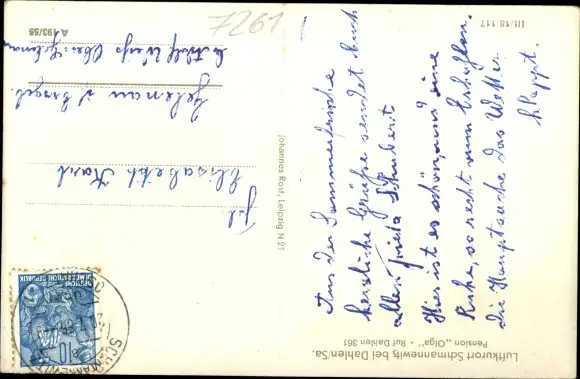 7261
III/18 117
A 193/55
Luftkurort Schmannewitz bei Dahlen/Sa.
Pension „Olga" - Ruf Dahlen 361
Johannes Rost, Leipzig N 21
Aus der Sommerfrische
herzliche Grüße sendet Euch
allen Frieda Schubert
Hier ist es schön, und eine
Ruhe, so recht zum Erhohlen.
die Hauptsache das Wetter
klappt.
Frl.
Elisabeth
Gelenau i/Erzgeb.
DEUTSCHE
DEMOKRATISCHE
REPUBLIK
10
SCHMANNEWITZ